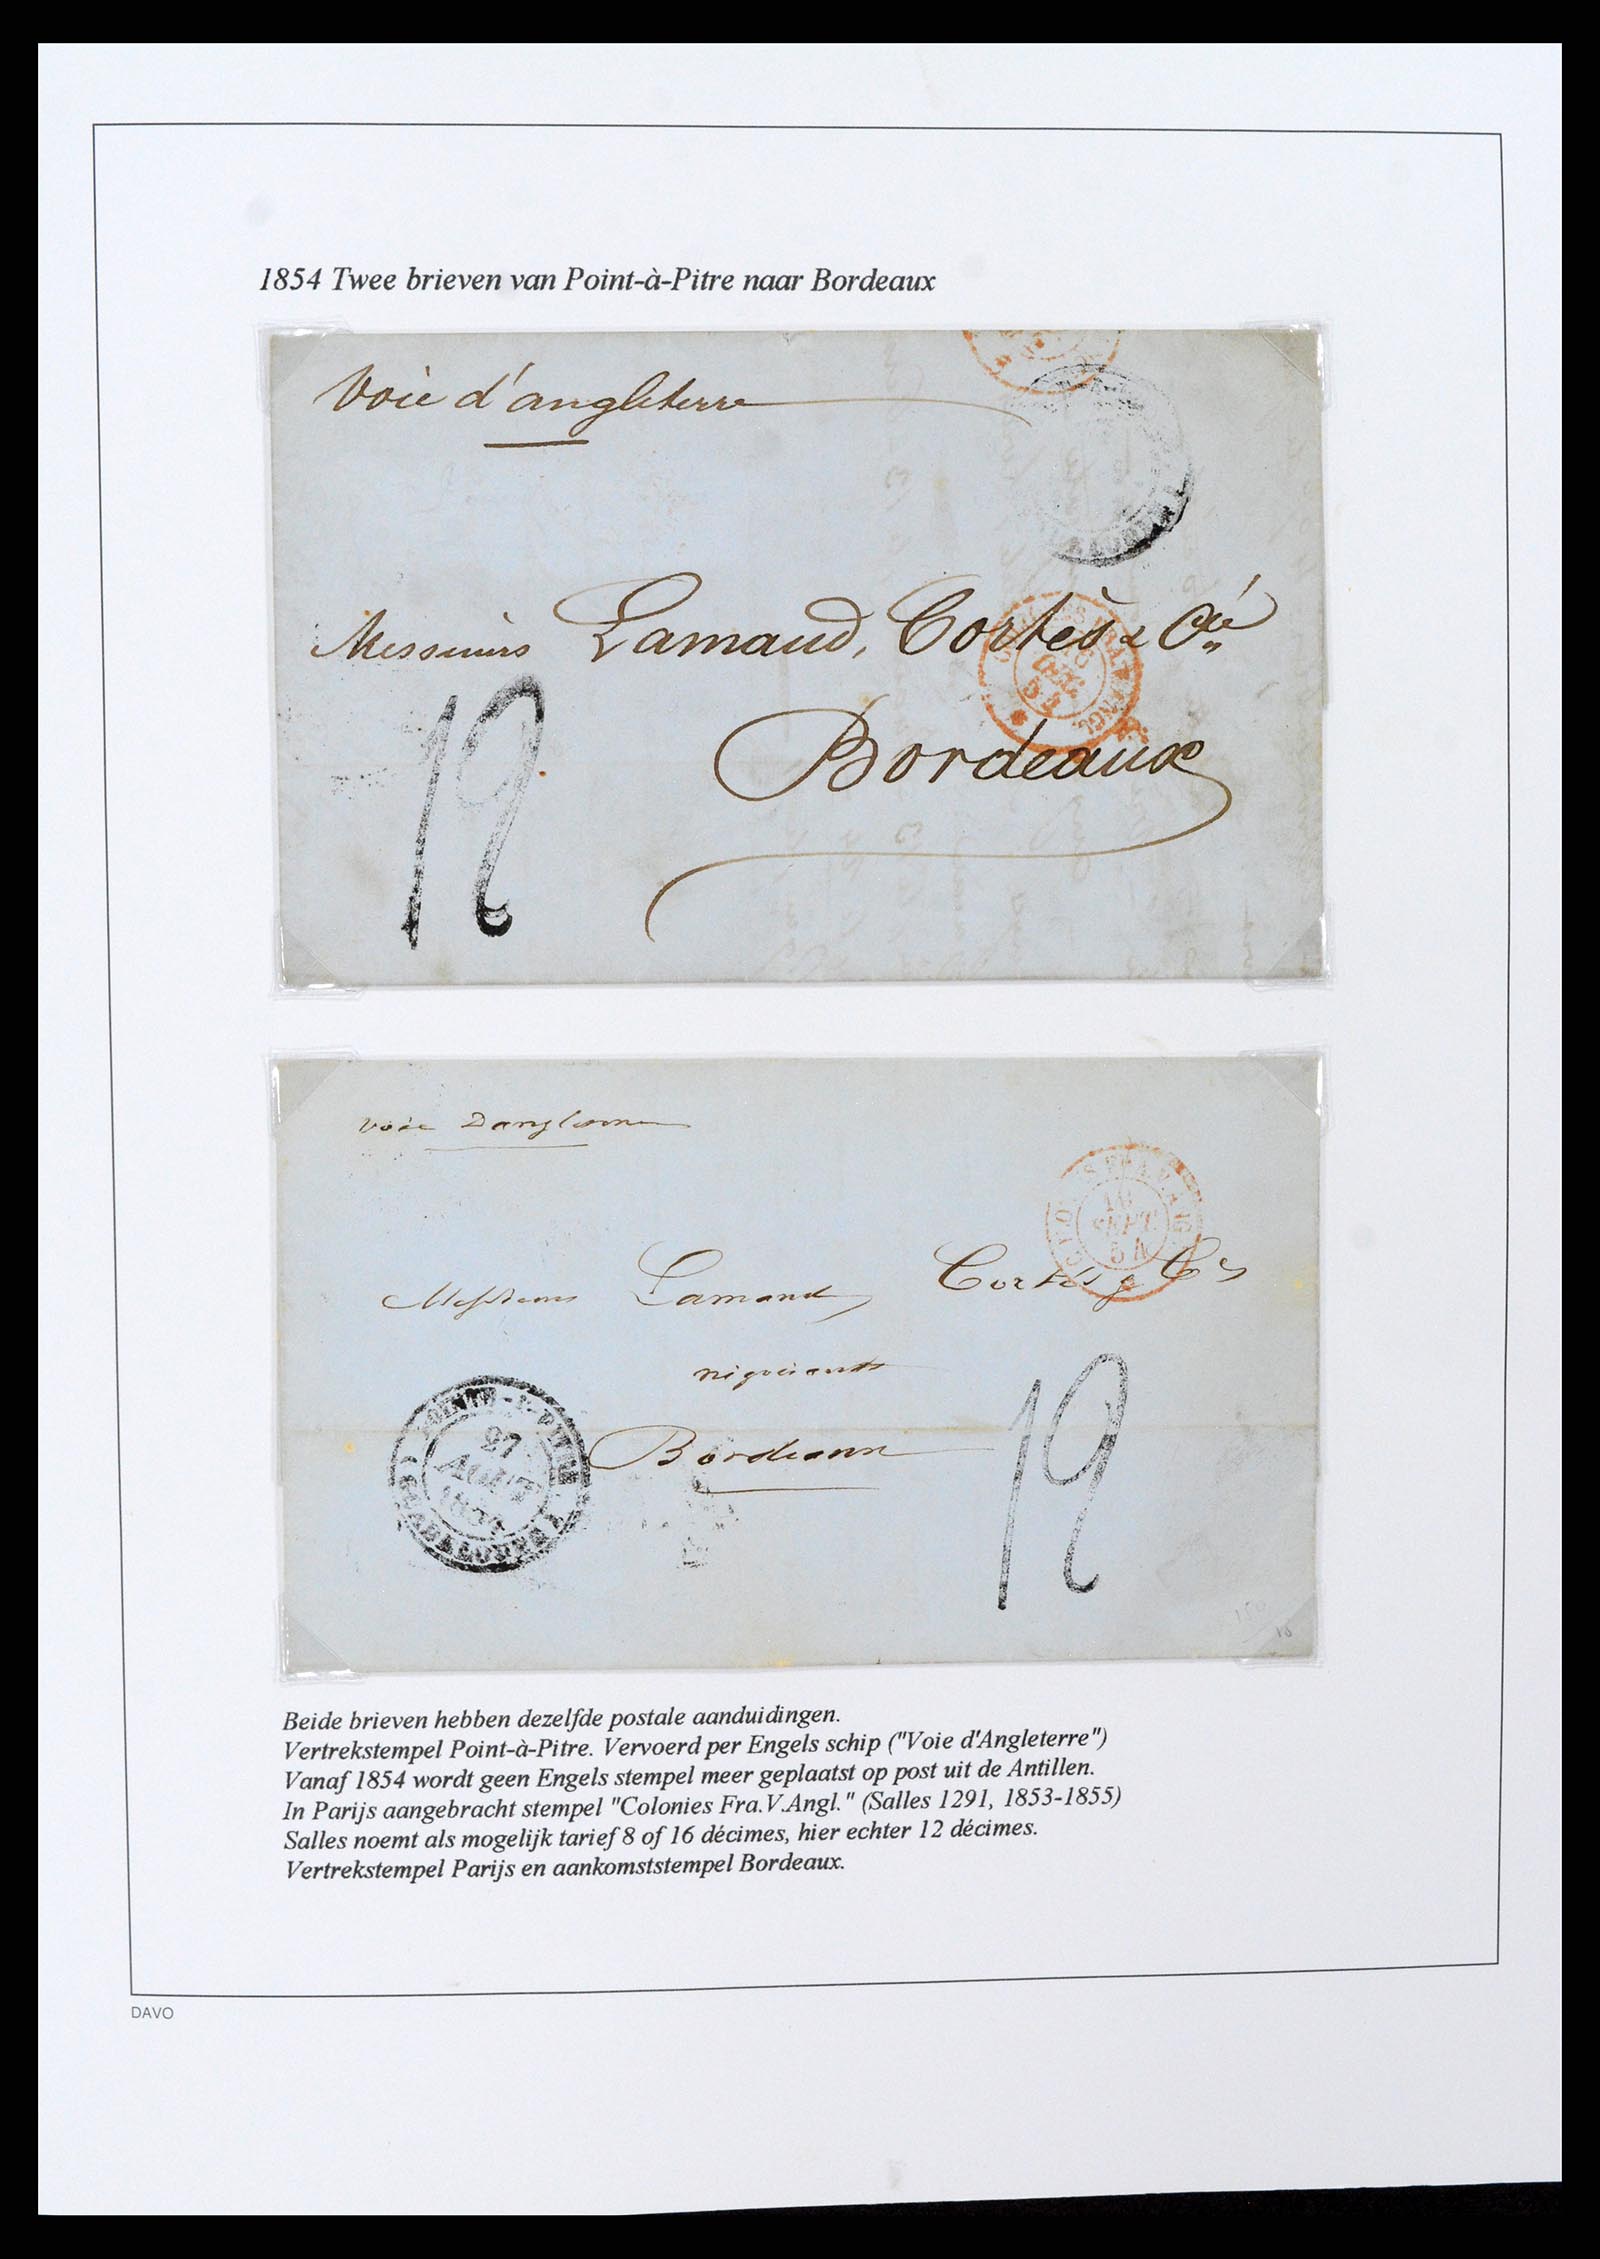 1854 Twee brieven van Point-à-Pitre naar Bordeaux
Voie d'angleterre
Messieurs Lamaud, Cortès & Cie
DEC.
54
12
Bordeaux
voie Dangleterre
16
SEPT.
54
Messieurs Lamaud, Cortés & Cie
négociants
27
AOUT
Bordeaux
12
150
Beide brieven hebben dezelfde postale aanduidingen.
Vertrekstempel Point-à-Pitre. Vervoerd per Engels schip ("Voie d'Angleterre")
Vanaf 1854 wordt geen Engels stempel meer geplaatst op post uit de Antillen.
In Parijs aangebracht stempel "Colonies Fra.V.Angl." (Salles 1291, 1853-1855)
Salles noemt als mogelijk tarief 8 of 16 décimes, hier echter 12 décimes.
Vertrekstempel Parijs en aankomststempel Bordeaux.
DAVO